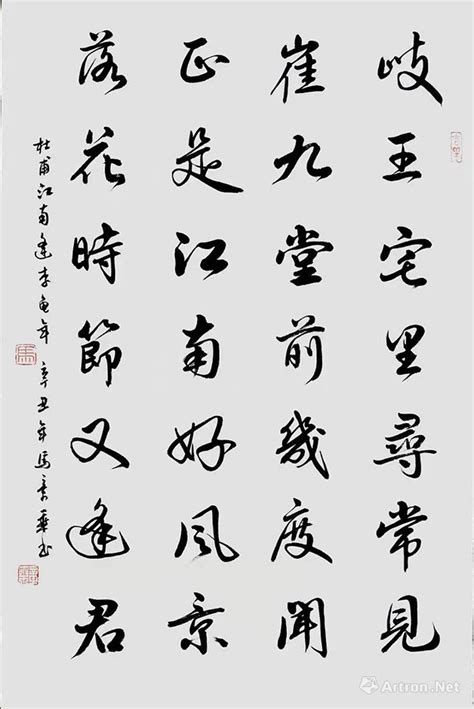 岐王宅里尋常見
崔九堂前幾度聞
正是江南好風景
落花時節又逢君
杜甫江南逢李龟年 辛丑年馬華书
Artron.Net